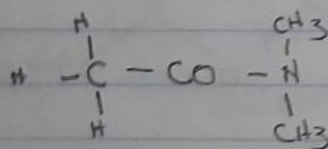 H CH3
H - C - CO - N
H CH3